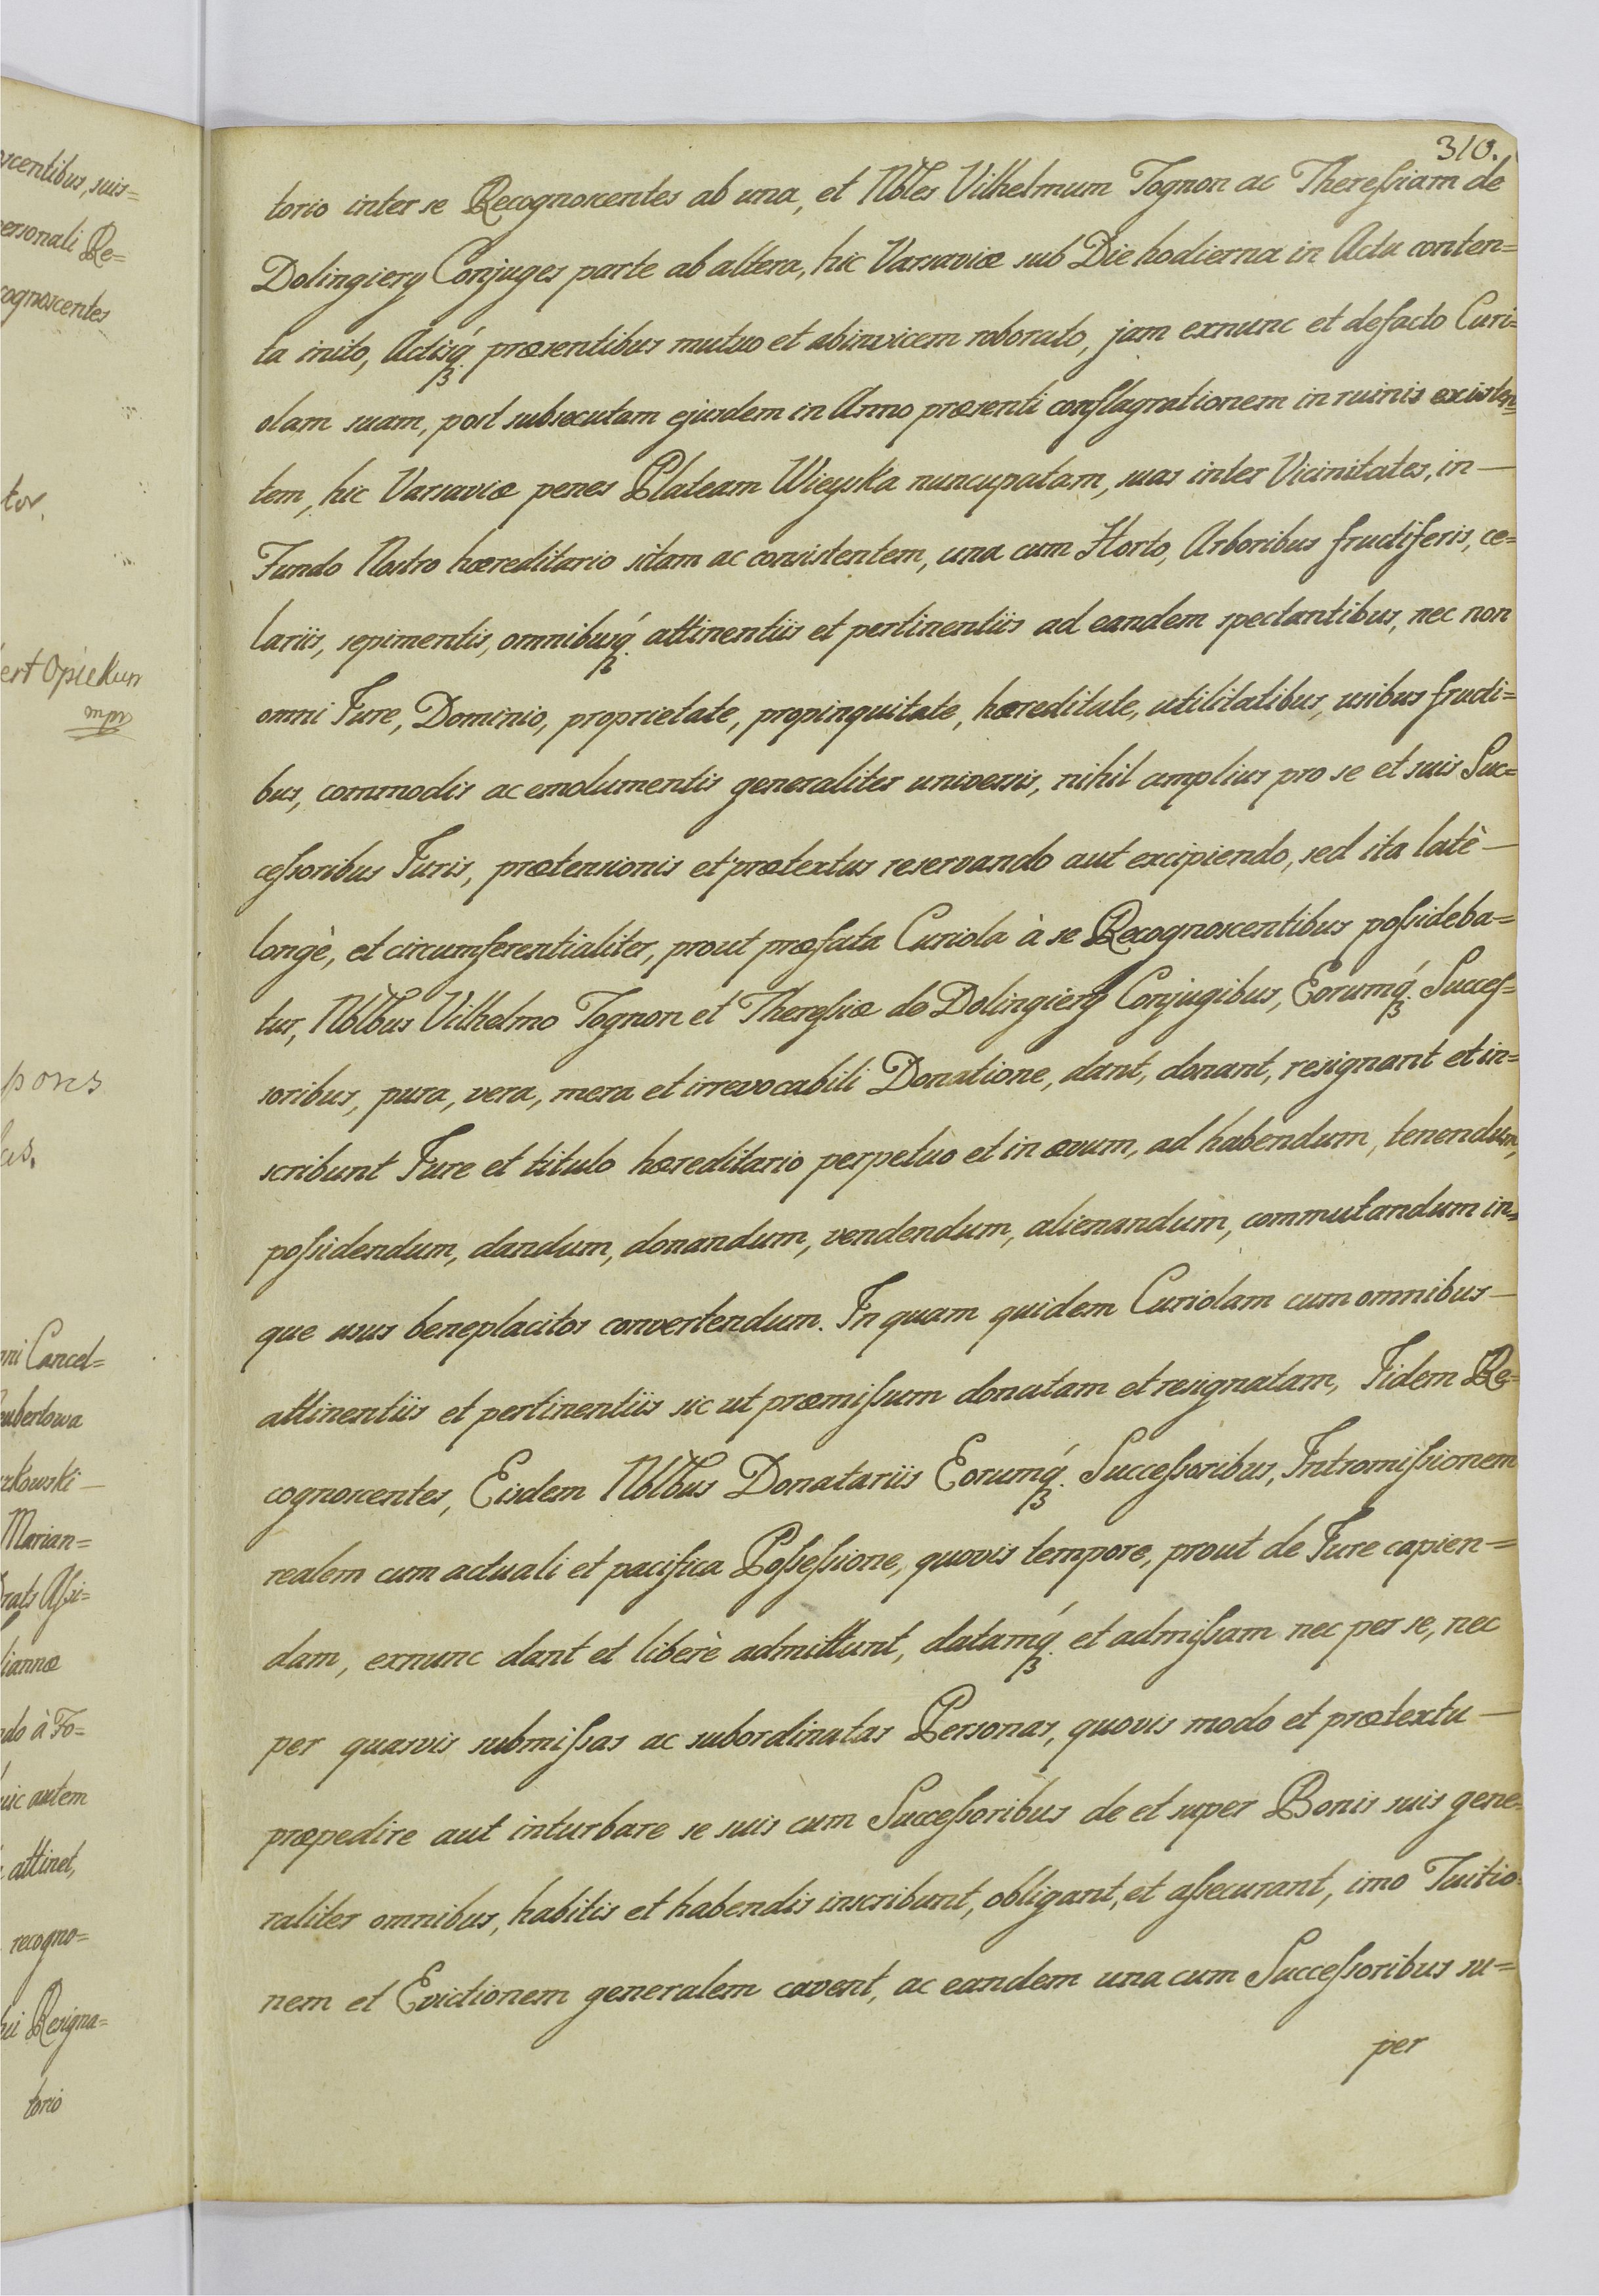 scentibus, suis=
ersonali Re=
cognoscentes
tor.
ert Opiekun
mpp
pores
us.
ni Cancel=
ubertowa
zkowski —
Marian=
rats Assi=
liannæ
do à Fo=
ic autem
attinet,
recogno=
ui Resigna=
torio
310.
torio inter se Recognoscentes ab una, et Nbles Vilhelmum Tognon ac Theressiam de
Dolingiery Conjuges parte ab altera, hic Varsaviæ sub Die hodierna in Actu conten=
ta inito, Actisq́ præsentibus mutuo et abinvicem roborato, jam exnunc et defacto Curi=
olam suam, post subsecutam ejusdem in Anno præsenti conflagrationem in ruinis existen=
tem, hic Varsaviæ penes Plateam Wieyska nuncupatam, suas inter Vicinitates, in —
Fundo Nostro hæreditario sitam ac consistentem, una cum Horto, Arboribus fructiferis, ce=
lariis, sepimentis, omnibusq́ attinentiis et pertinentiis ad eandem spectantibus, nec non
omni Jure, Dominio, proprietate, propinquitate, hæreditate, utilitatibus, usibus fructi=
bus, commodis ac emolumentis generaliter universis, nihil amplius pro se et suis Suc=
cessoribus Juris, prætensionis et prætextus reservando aut excipiendo, sed ita latè —
longè, et circumferentialiter, prout præfata Curiola à se Recognoscentibus possideba=
tur, Nblbus Vilhelmo Tognon et Theressiæ de Dolingiery Conjugibus, Eorumq́ Succes=
soribus, pura, vera, mera et irrevocabili Donatione, dant, donant, resignant et in=
scribunt Jure et titulo hæreditario perpetuo et in ævum, ad habendum, tenendum,
possidendum, dandum, donandum, vendendum, alienandum, commutandum in=
que usus beneplacitos convertendum. In quam quidem Curiolam cum omnibus —
attinentiis et pertinentiis sic ut præmissum donatam et resignatam, Iidem Re=
cognoscentes, Eisdem Nblbus Donatariis Eorumq́ Successoribus, Intromissionem
realem cum actuali et pacifica Possessione, quovis tempore, prout de Jure capien=
dam, exnunc dant et liberè admittunt, datamq́ et admissam nec per se, nec
per quasvis submissas ac subordinatas Personas, quovis modo et prætextu —
præpedire aut inturbare se suis cum Successoribus de et super Bonis suis gene=
raliter omnibus, habitis et habendis inscribunt, obligant, et assecurant, imo Tuitio=
nem et Evictionem generalem cavent, ac eandem una cum Successoribus su=
per